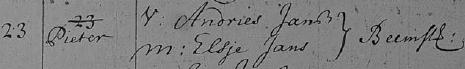 23
23 Pieter
V: Andries Jansz
m: Elsje Jans } Beemst: